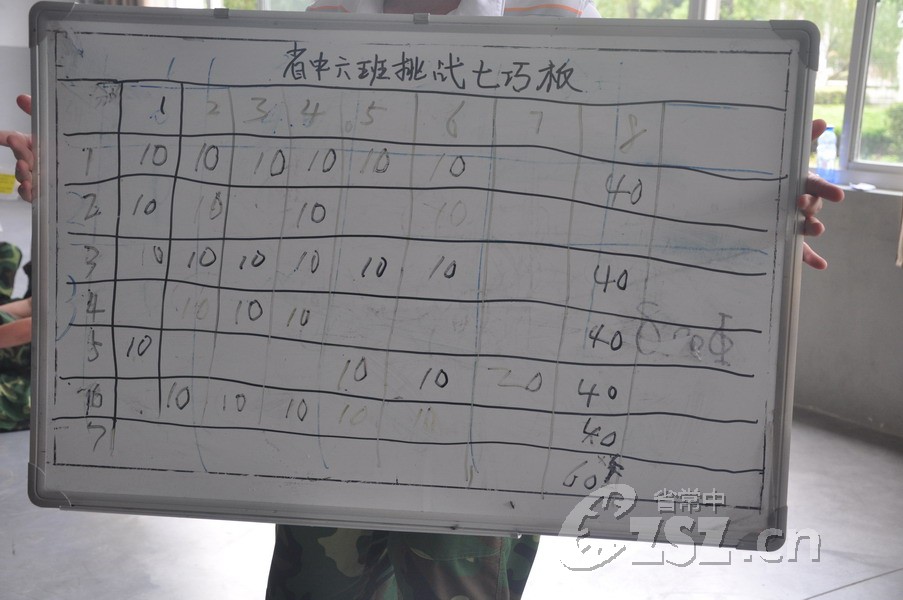 省中六班挑战七巧板
1 2 3 4 5 6 7 8
1 10 10 10 10 10 10 40
2 10 10 10 10
3 10 10 10 10 10 10 40
4 10 10 10 40
5 10 10 10 20 40
6 10 10 10 10 10 40
7 60
省常中
ZSZ.cn